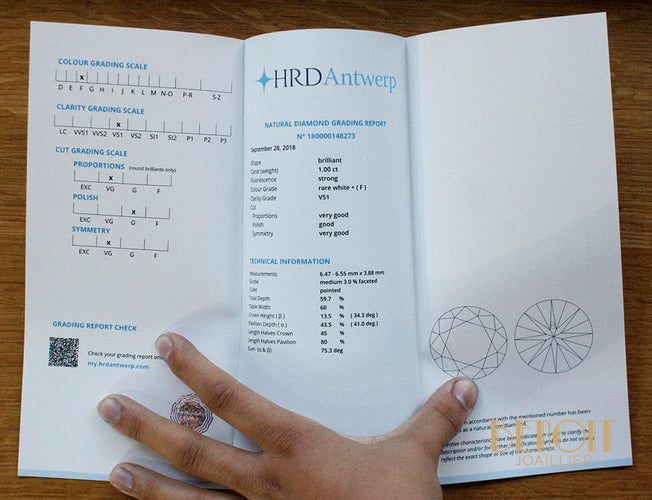 COLOUR GRADING SCALE
x
D E F G H I J K L M N-O P-R S-Z
CLARITY GRADING SCALE
x
LC VVS1 VVS2 VS1 VS2 SI1 SI2 P1 P2 P3
CUT GRADING SCALE
PROPORTIONS (round brilliants only)
x
EXC VG G F
POLISH
x
EXC VG G F
SYMMETRY
x
EXC VG G F
GRADING REPORT CHECK
Check your grading report
my.hrdantwerp.com
HRDAntwerp
NATURAL DIAMOND GRADING REPORT
N° 180000148273
September 28, 2018
Shape brilliant
Carat (weight) 1.00 ct
Fluorescence strong
Colour Grade rare white + ( F )
Clarity Grade VS1
Cut
Proportions very good
Polish good
Symmetry very good
TECHNICAL INFORMATION
Measurements 6.47 - 6.55 mm x 3.88 mm
Girdle medium 3.0 % faceted
Culet pointed
Total Depth 59.7 %
Table Width 60 %
Crown Height ( β ) 13.5 % ( 34.3 deg )
Pavilion Depth ( α ) 43.5 % ( 41.0 deg )
Length Halves Crown 45 %
Length Halves Pavilion 80 %
Sum (α & β) 75.3 deg
in accordance with the mentioned number has been
as a natural
characteristics have been indicated in order to clarify
description and/or for further identification
reflect the exact shape or size of the characteristics.
JOAILLIER